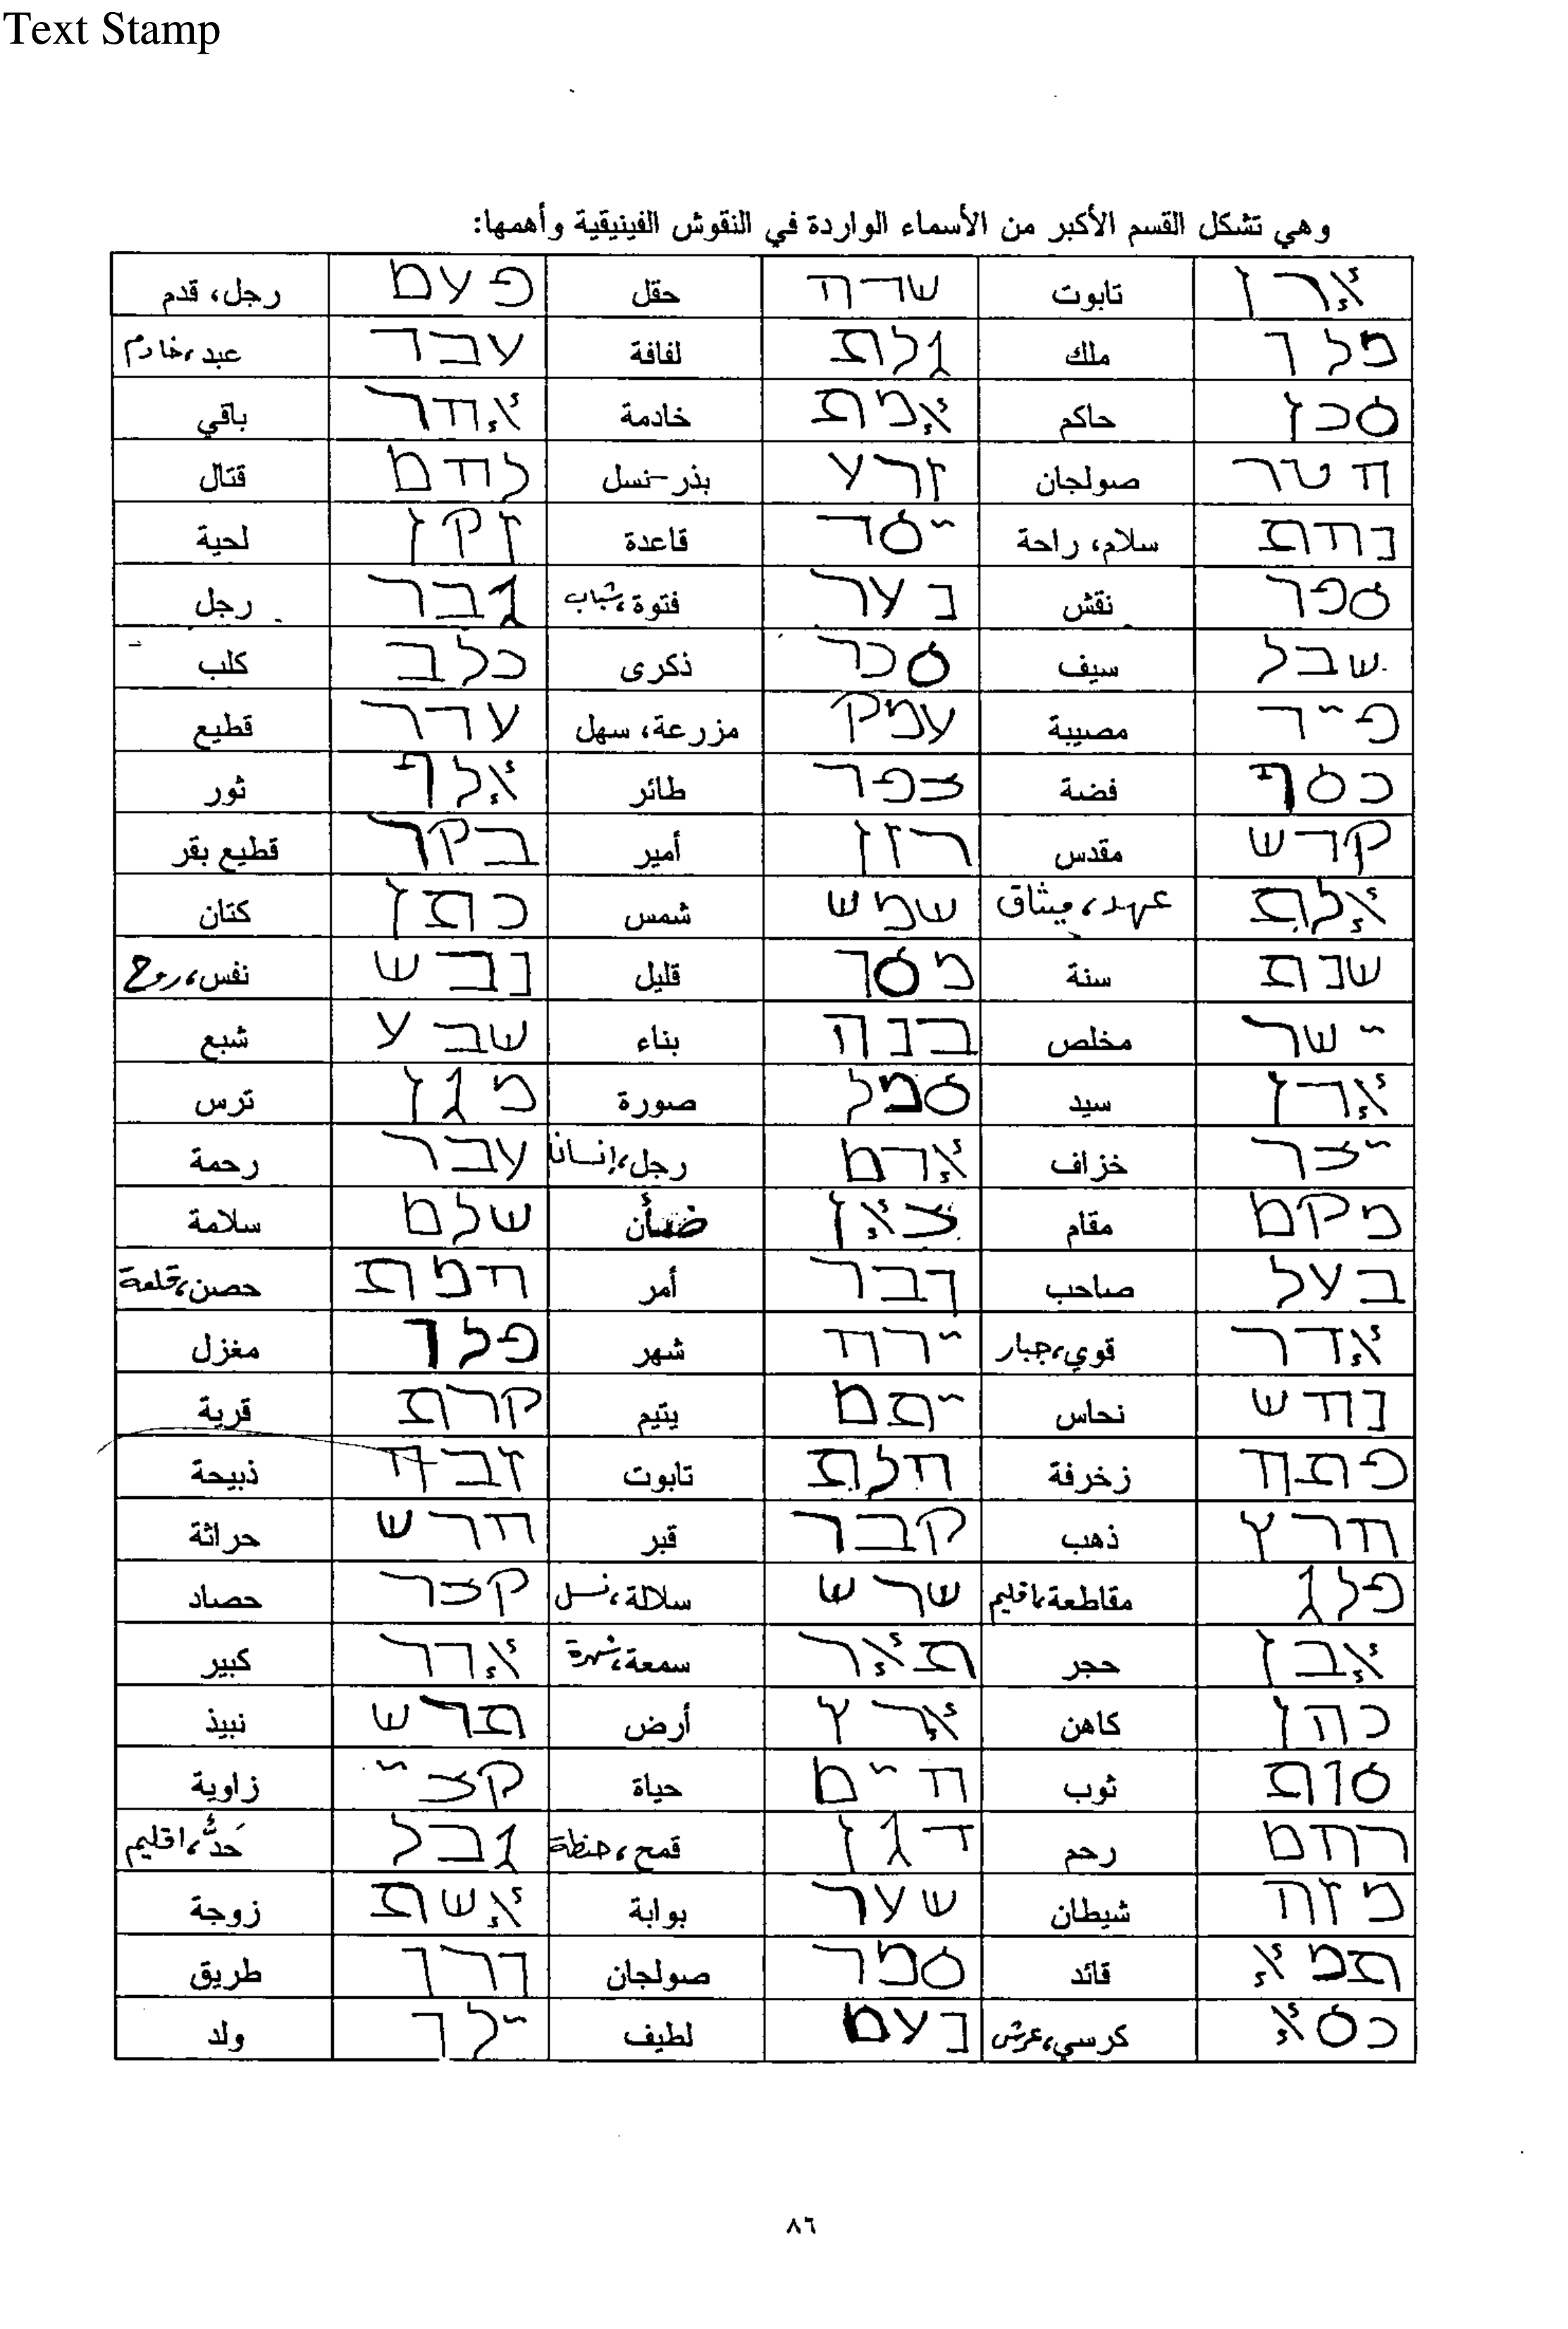 Text Stamp
وهي تشكل القسم الأكبر من الأسماء الواردة في النقوش الفينيقية وأهمها:
ארן تابوت שדה حقل פעם رجل، قدم
מלך ملك גלת لفافة עבד عبد، خادم
סכן حاكم אמת خادمة אחר باقي
חטר صولجان זרע بذر-نسل לחם قتال
נחת سلام، راحة יסד قاعدة זקן لحية
ספר نقش נער فتوة، شباب גבר رجل
שבל سيف סכר ذكرى כלב كلب
פיד مصيبة עמק مزرعة، سهل עדר قطيع
כסף فضة צפר طائر אלף ثور
קדש مقدس רזן أمير בקר قطيع بقر
אלת عهد، ميثاق שמש شمس כתן كتان
שנת سنة מסר قليل נבש نفس، روح
ישר مخلص בנה بناء שבע شبع
אדן سيد סמל صورة מגן ترس
יצר خزاف אדם رجل، إنسان עבר رحمة
מקם مقام צאן ضأن שלם سلامة
בעל صاحب דבר أمر חמת حصن، قلعة
אדר قوي، جبار ירח شهر פלך مغزل
נחש نحاس יתם يتيم קרת قرية
פתח زخرفة חלת تابوت זבח ذبيحة
חרץ ذهب קבר قبر חרש حراثة
פלג مقاطعة، اقليم שרש سلالة، نسل קצר حصاد
אבן حجر תאר سمعة، شهرة אדר كبير
כהן كاهن ארץ أرض תרש نبيذ
סות ثوب חיים حياة קצי زاوية
רחם رحم דגן قمح، حنطة גבל حدّ، اقليم
מזה شيطان שער بوابة אשת زوجة
תמא قائد סמר صولجان דרך طريق
כסא كرسي، عرش נעם لطيف ילד ولد
٨٦